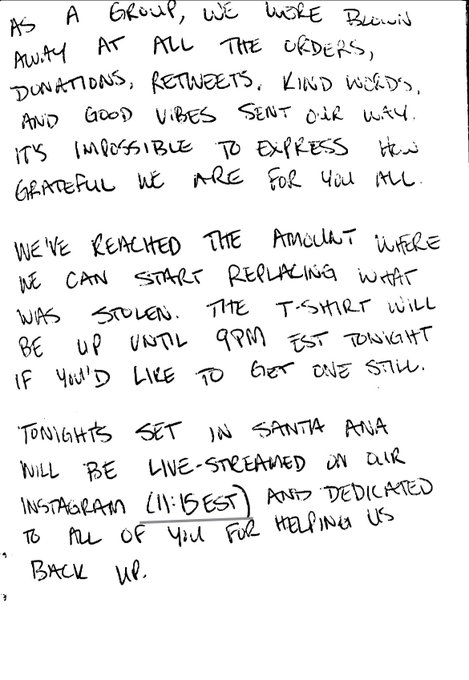 AS A GROUP, WE WERE BLOWN
AWAY AT ALL THE ORDERS,
DONATIONS, RETWEETS, KIND WORDS,
AND GOOD VIBES SENT OUR WAY.
IT'S IMPOSSIBLE TO EXPRESS HOW
GRATEFUL WE ARE FOR YOU ALL.
WE'VE REACHED THE AMOUNT WHERE
WE CAN START REPLACING WHAT
WAS STOLEN. THE T-SHIRT WILL
BE UP UNTIL 9PM EST TONIGHT
IF YOU'D LIKE TO GET ONE STILL.
TONIGHTS SET IN SANTA ANA
WILL BE LIVE-STREAMED ON OUR
INSTAGRAM (11:15 EST) AND DEDICATED
TO ALL OF YOU FOR HELPING US
BACK UP.